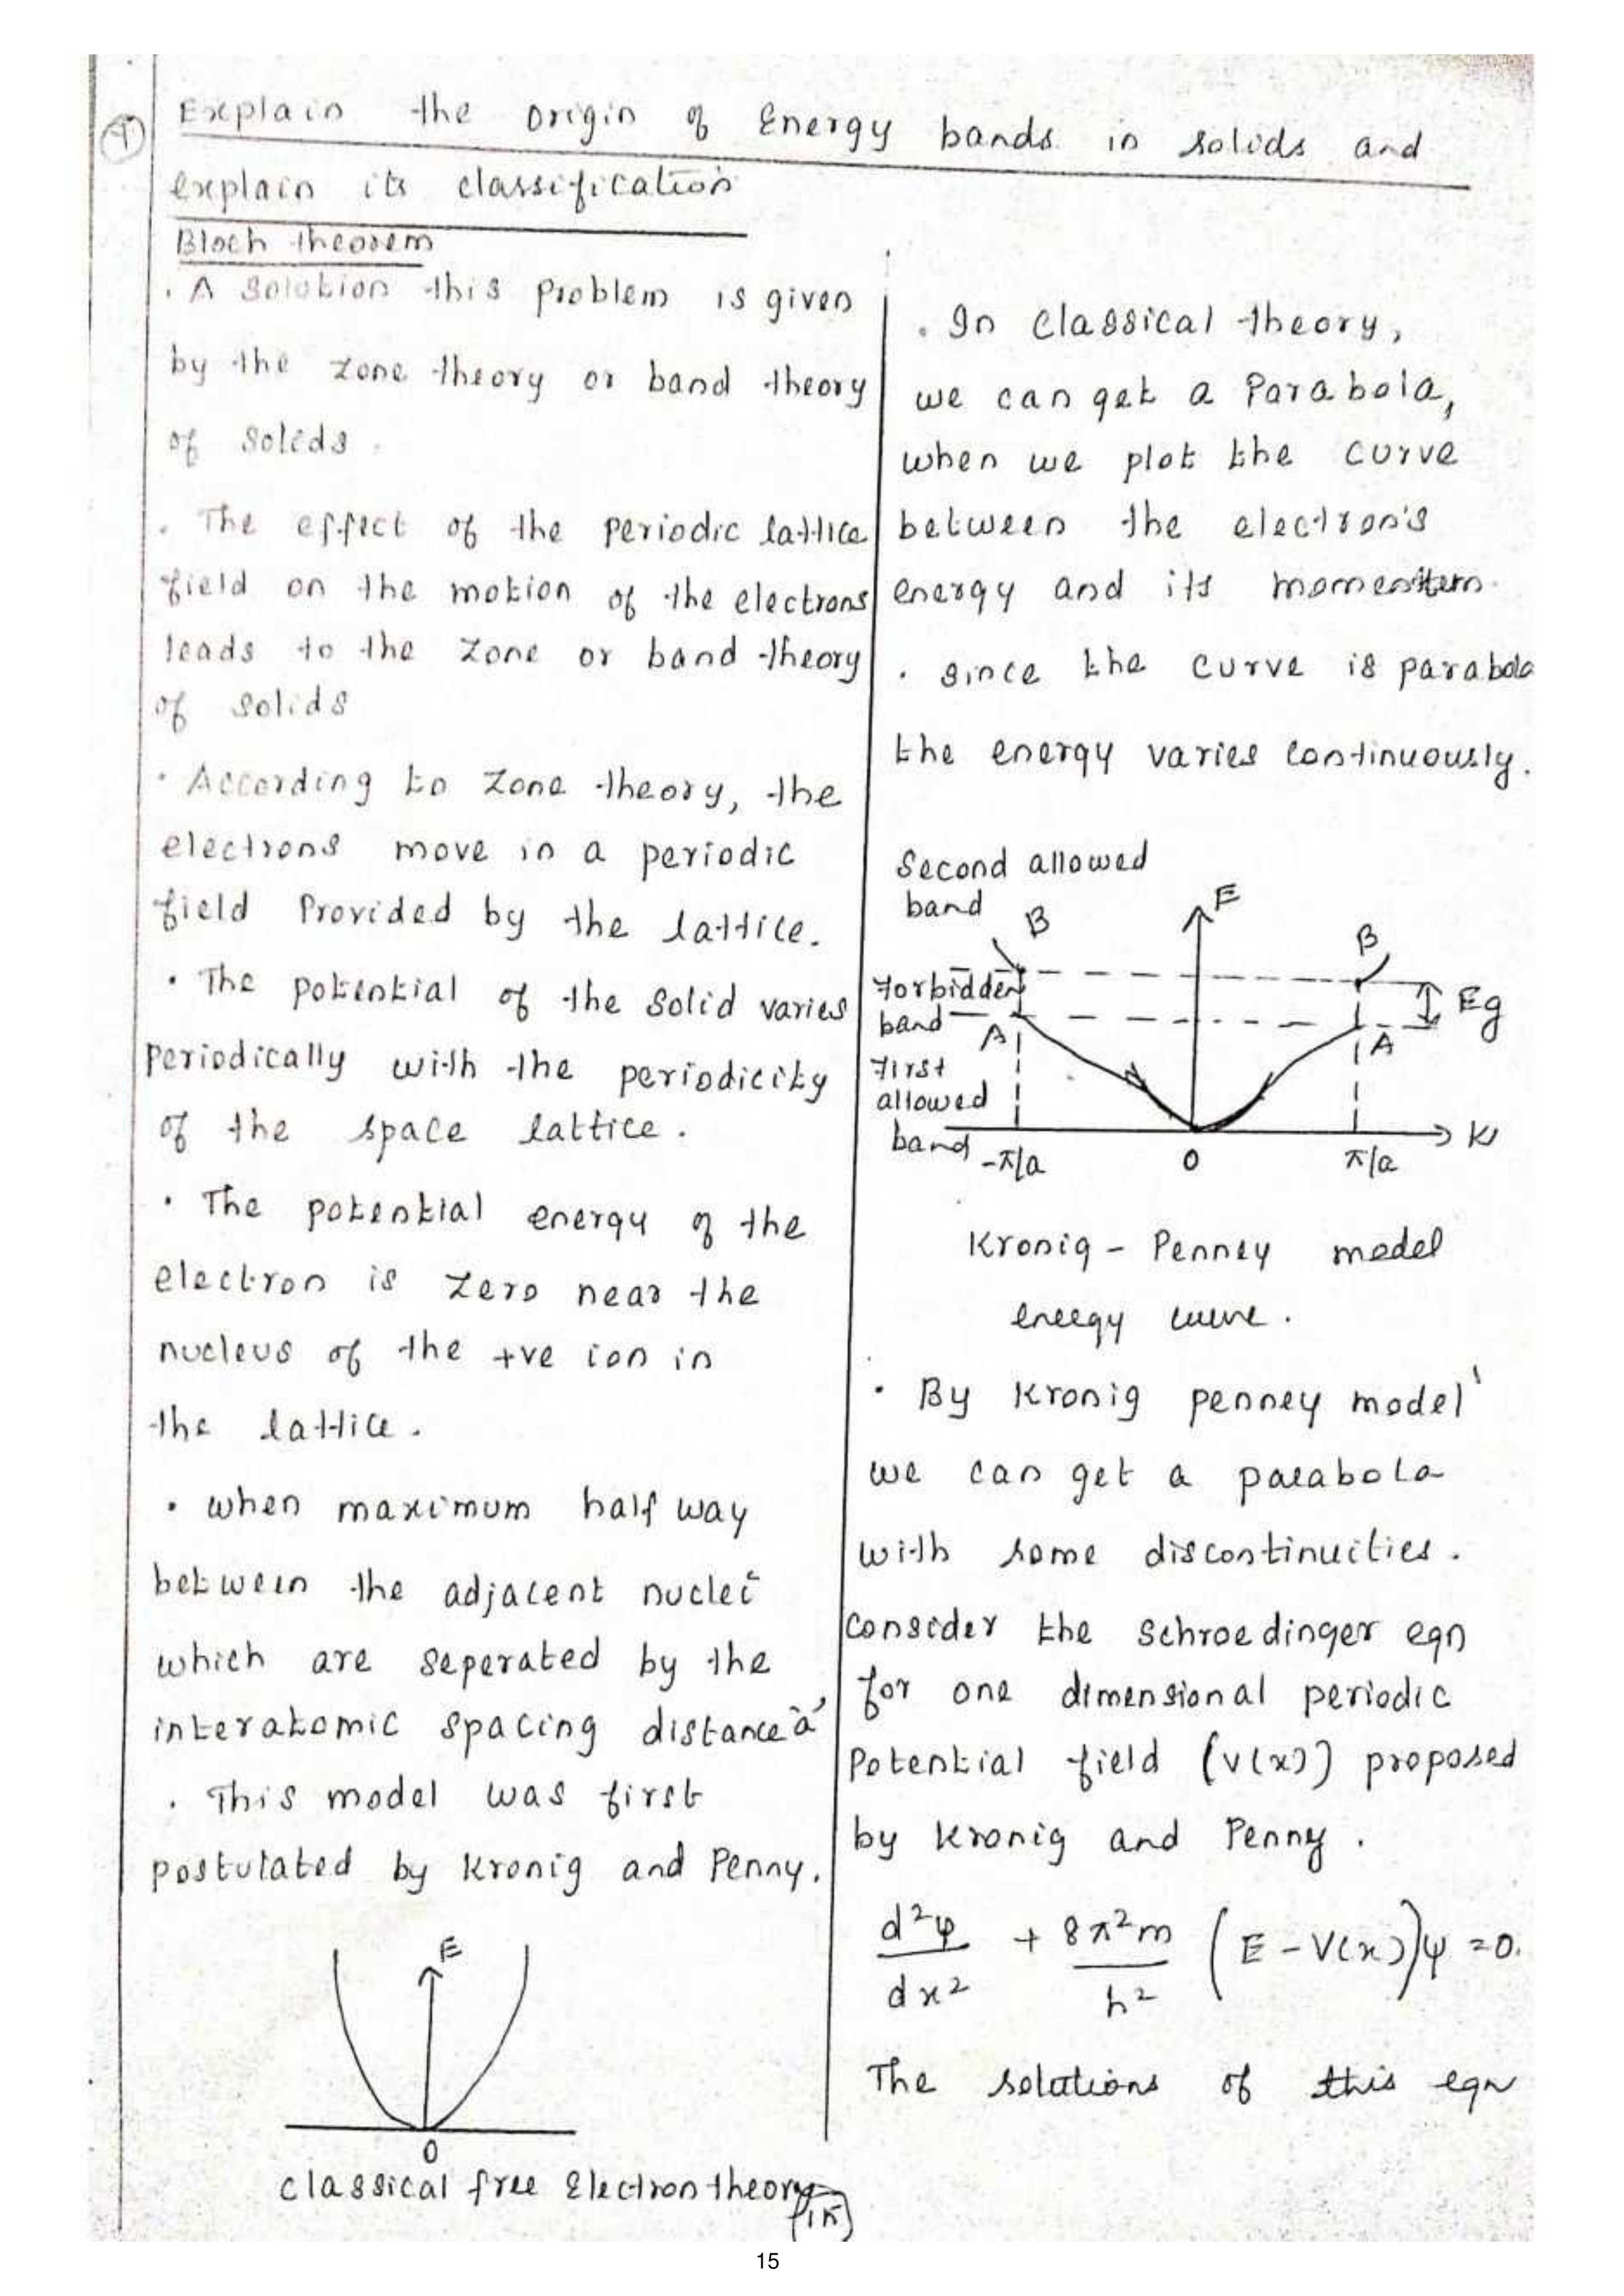 Explain the origin of Energy bands in solids and
explain its classification
Bloch theorem
. A Solution this problem is given
by the zone theory or band theory
of solids.
. The effect of the periodic lattice
field on the motion of the electrons
leads to the zone or band theory
of solids
. According to zone theory, the
electrons move in a periodic
field Provided by the lattice.
. The potential of the solid varies
Periodically with the periodicity
of the space lattice.
. The potential energy of the
electron is zero near the
nucleus of the +ve ion in
the lattice.
. when maximum half way
between the adjacent nuclei
which are seperated by the
interatomic spacing distance 'a'
. This model was first
postulated by Kronig and Penny.
E
0
classical free Electron theory
. In classical theory,
we can get a Parabola,
when we plot the curve
between the electron's
energy and its momentum.
. since the curve is parabola
the energy varies continuously.
Second allowed
band
B
E
B
Forbidden
band
A
A
Eg
First
allowed
band
-π/a
0
π/a
K
Kronig - Penney model
energy curve.
. By Kronig penney model
we can get a parabola
with some discontinuities.
Consider the Schroedinger eqn
for one dimensional periodic
Potential field (V(x)) proposed
by Kronig and Penny.
d²ψ/dx² + 8π²m/h² (E - V(x))ψ = 0.
The solutions of this eqn
15